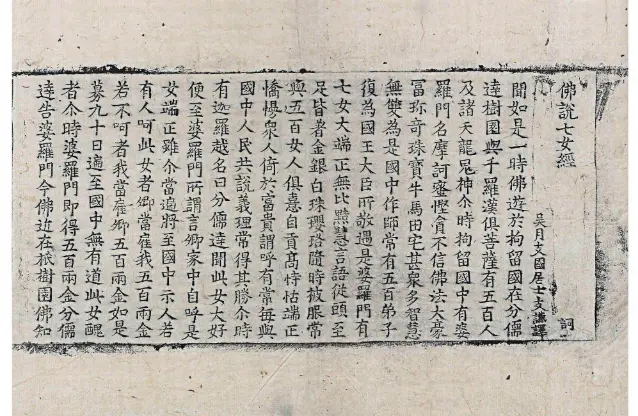 佛說七女經
吳月支國居士支謙譯 詞
聞如是一時佛遊於拘留國在分儒
達樹園與千羅漢俱菩薩有五百人
及諸天龍鬼神尒時拘留國中有婆
羅門名摩訶蜜慳貪不信佛法大豪
冨珎奇珠寶牛馬田宅甚衆多智慧
無雙為是國中作師常有五百弟子
復為國王大臣所敬遇是婆羅門有
七女大端正無比黠慧言語從頭至
足皆著金銀白珠瓔珞隨時被服常
與五百女人俱憙自貢高恃怙端正
憍慢衆人倚於冨貴謂呼有常每與
國中人民共說義理常得其勝尒時
有迦羅越名曰分儒達聞此女大好
便至婆羅門所謂言卿家中自呼是
女端正雖尒當遍將至國中示人若
有人呵此女者卿當雇我五百兩金
若不呵者我當雇卿五百兩金如是
募九十日遍至國中無有道此女醜
者尒時婆羅門即得五百兩金分儒
達告婆羅門今佛近在祇樹園佛知